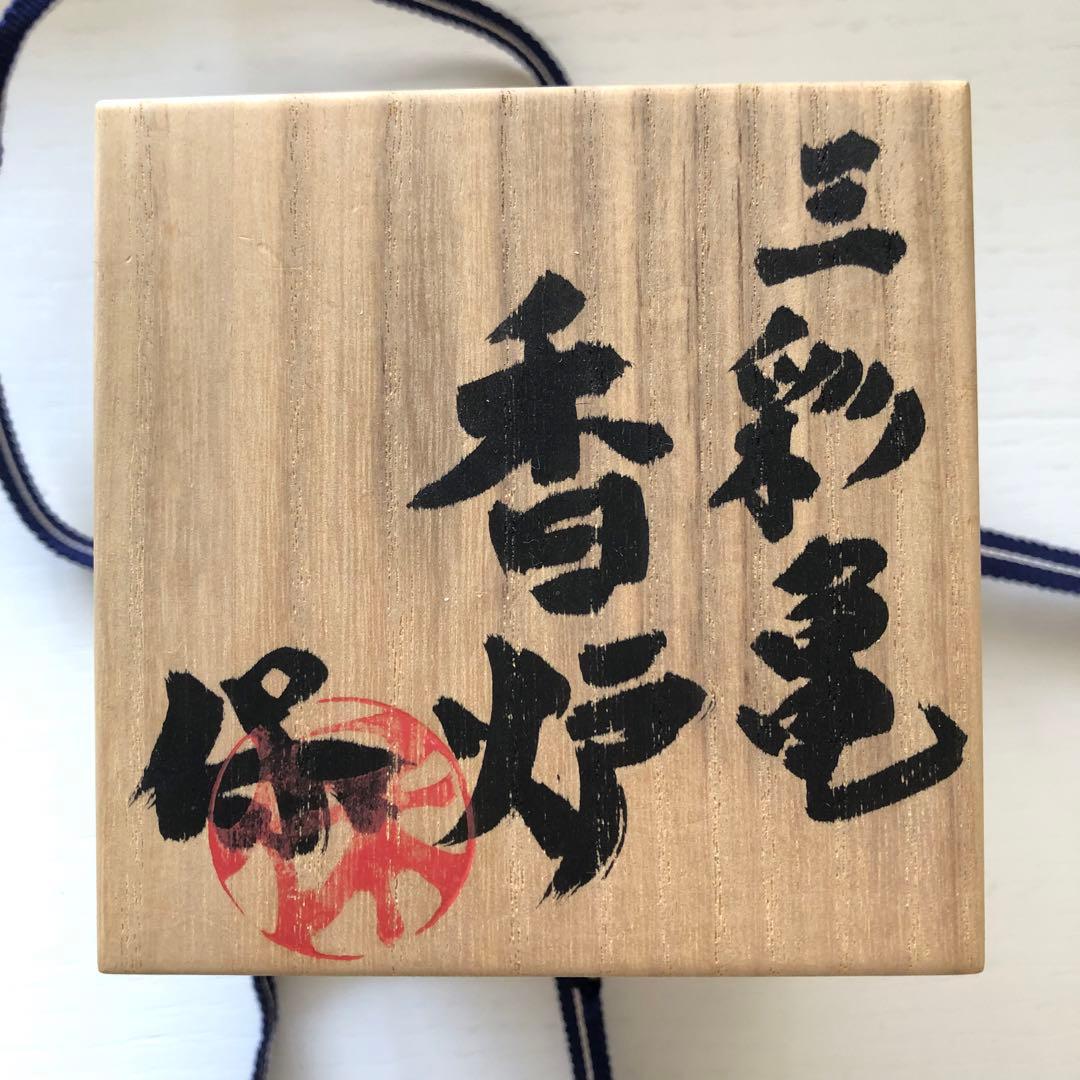 三彩亀
香炉
保